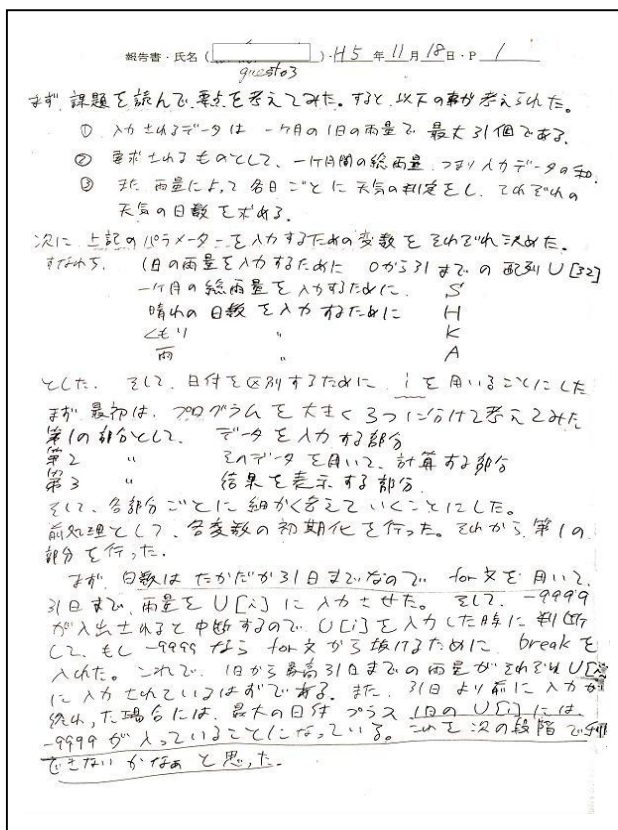 報告書・氏名( )・H5 年 11 月 18 日・P 1
guest03
まず 課題を読んで、要点を考えてみた。すると、以下の事が考えられた。
① 入力されるデータは 一ヶ月の1日の雨量で 最大31個である。
② 要求されるものとして、一ヶ月間の総雨量、つまり入力データの和。
③ また 雨量によって 各日ごとに 天気の判定をし、それぞれの
天気の日数を求める。
次に 上記のパラメーターを入力するための変数を それぞれ決めた。
すなわち、 1日の雨量を入力するために 0から31までの 配列 U[32]
一ヶ月の総雨量を入力するために、 S
晴れの日数を入力するために H
くもり 〃 K
雨 〃 A
とした。 そして、日付を区別するために、i を用いることにした
まず 最初は、プログラムを大きく3つに分けて考えてみた
第1の部分として、 データを入力する部分
第2 〃 そのデータを用いて、計算する部分
第3 〃 結果を表示する部分
そして、各部分ごとに細かく考えていくことにした。
前処理として、各変数の初期化を行った。それから、第1の
部分を行った。
まず、日数は たかだか31日までなので for文を用いて、
31日まで、雨量を U[i] に入力させた。 そして、-9999
が入出されると中断するので U[i]を入力した時に 判断
して、もし -9999 なら for文から抜けるために、break を
入れた。 これで、1日から最高31日までの雨量がそれぞれ U[i]
に入力されているはずである。また、31日より前に入力が
終わった場合には、最大の日付 プラス 1日の U[i] には
-9999 が入っていることになっている。これを次の段階で利用
できないかなぁ と思った。